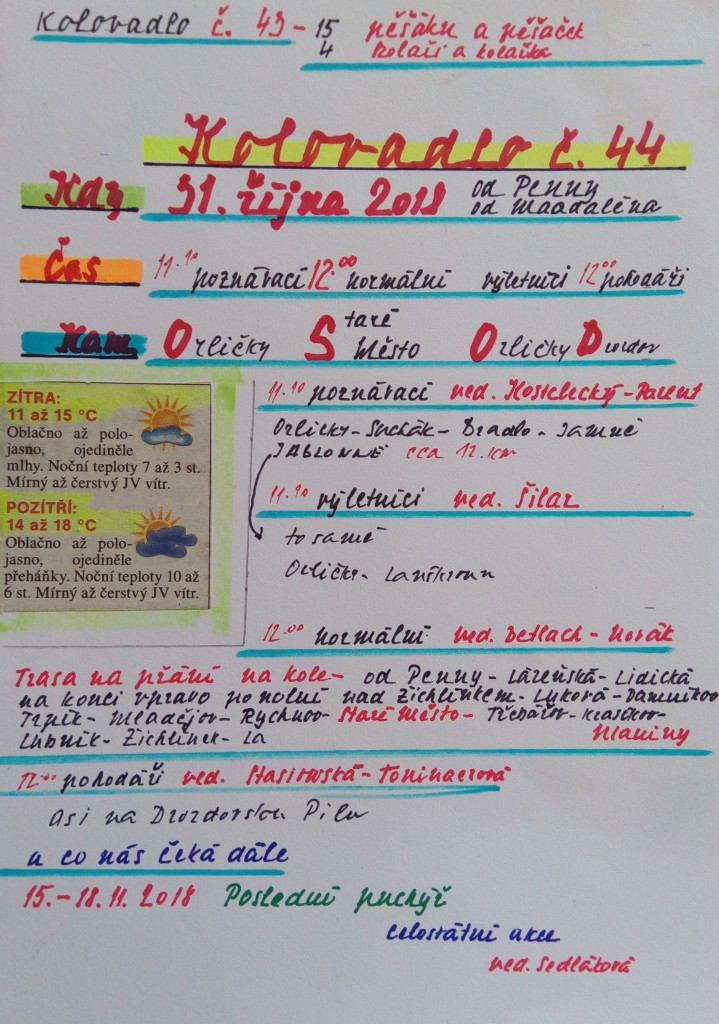 Kolovadlo č. 43 - 15 pěšáků a pěšaček
4 kolaři a kolařka
Kolovadlo č. 44
Kdy 31. října 2018 od Penny
od Maadaléna
Čas 11.10 poznávací 12.00 normální výletníci 12.00 pohodáři
Kam Orličky Staré Město Orličky Drozdov
ZÍTRA:
11 až 15 °C
Oblačno až polo-
jasno, ojediněle
mlhy. Noční teploty 7 až 3 st.
Mírný až čerstvý JV vítr.
POZÍTŘÍ:
14 až 18 °C
Oblačno až polo-
jasno, ojediněle
přeháňky. Noční teploty 10 až
6 st. Mírný až čerstvý JV vítr.
11.10 poznávací ved. Kostelecký - Parent
Orličky - Suchák - Bradlo - Jamné
JABLONNÉ cca 12. km
11.10 výletníci ved. Šilar
to samé
Orličky - Lanškroun
12.00 normální ved. Detlach - Novák
Trasa na přání na kole - od Penny - Lázeňská - Lidická
na konci vpravo po polní nad Žichlínkem - Luková - Damníkov
Trpík - Mladějov - Rychnov - Staré Město - Třebářov - Krasíkov -
Lubník - Žichlínek - La Hlaviny
12.00 pohodáři ved. Stasiowská -
asi na Drozdovskou Pilu
a co nás čeká dále
15. - 18. 11. 2018 Poslední puchýř
celostátní akce
ved. Sedláková